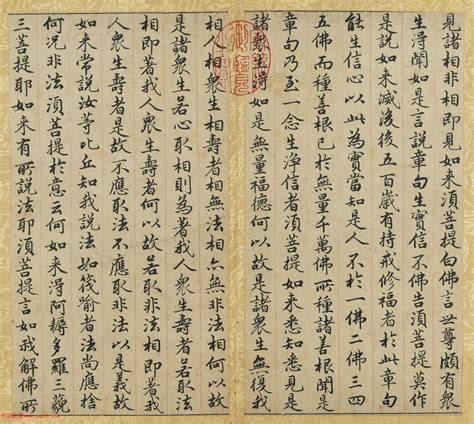 見諸相非相則見如来須菩提白佛言世尊頗有衆
生淂聞如是言說章句生實信不佛告須菩提莫作
是說如来滅後後五百歲有持戒修福者於此章句
能生信心以此為實當知是人不於一佛二佛三四
五佛而種善根已於無量千萬佛所種諸善根聞是
章句乃至一念生淨信者須菩提如来悉知悉見是
諸衆生淂如是無量福德何以故是諸衆生無復我
相人相衆生相壽者相無法相亦無非法相何以故
是諸衆生若心取相則為著我人衆生壽者若取法
相即著我人衆生壽者何以故若取非法相即著我
人衆生壽者是故不應取法不應取非法以是義故
如来常說汝等比丘知我說法如筏喻者法尚應捨
何況非法須菩提於意云何如来得阿耨多羅三藐
三菩提耶如来有所說法耶須菩提言如我解佛所